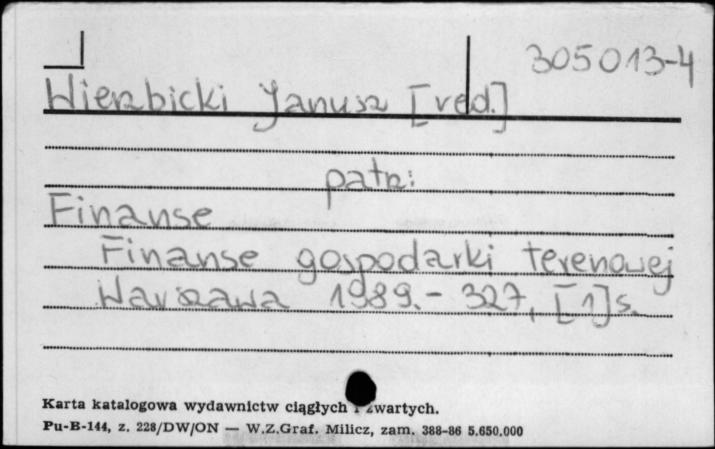 305013-4
Wierzbicki Janusz [red.]
patrz:
Finanse
Finanse gospodarki terenowej
Warszawa 1989. - 327, [1] s.
Karta katalogowa wydawnictw ciągłych zwartych.
Pu-B-144, z. 228/DW/ON — W.Z.Graf. Milicz, zam. 388-86 5.650.000